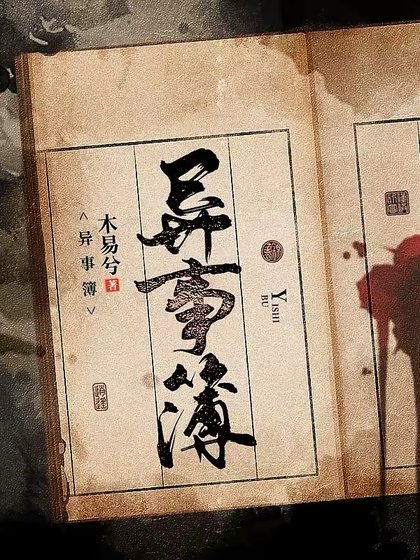 异事簿
YISHI
BU
木易兮 著
<异事簿>